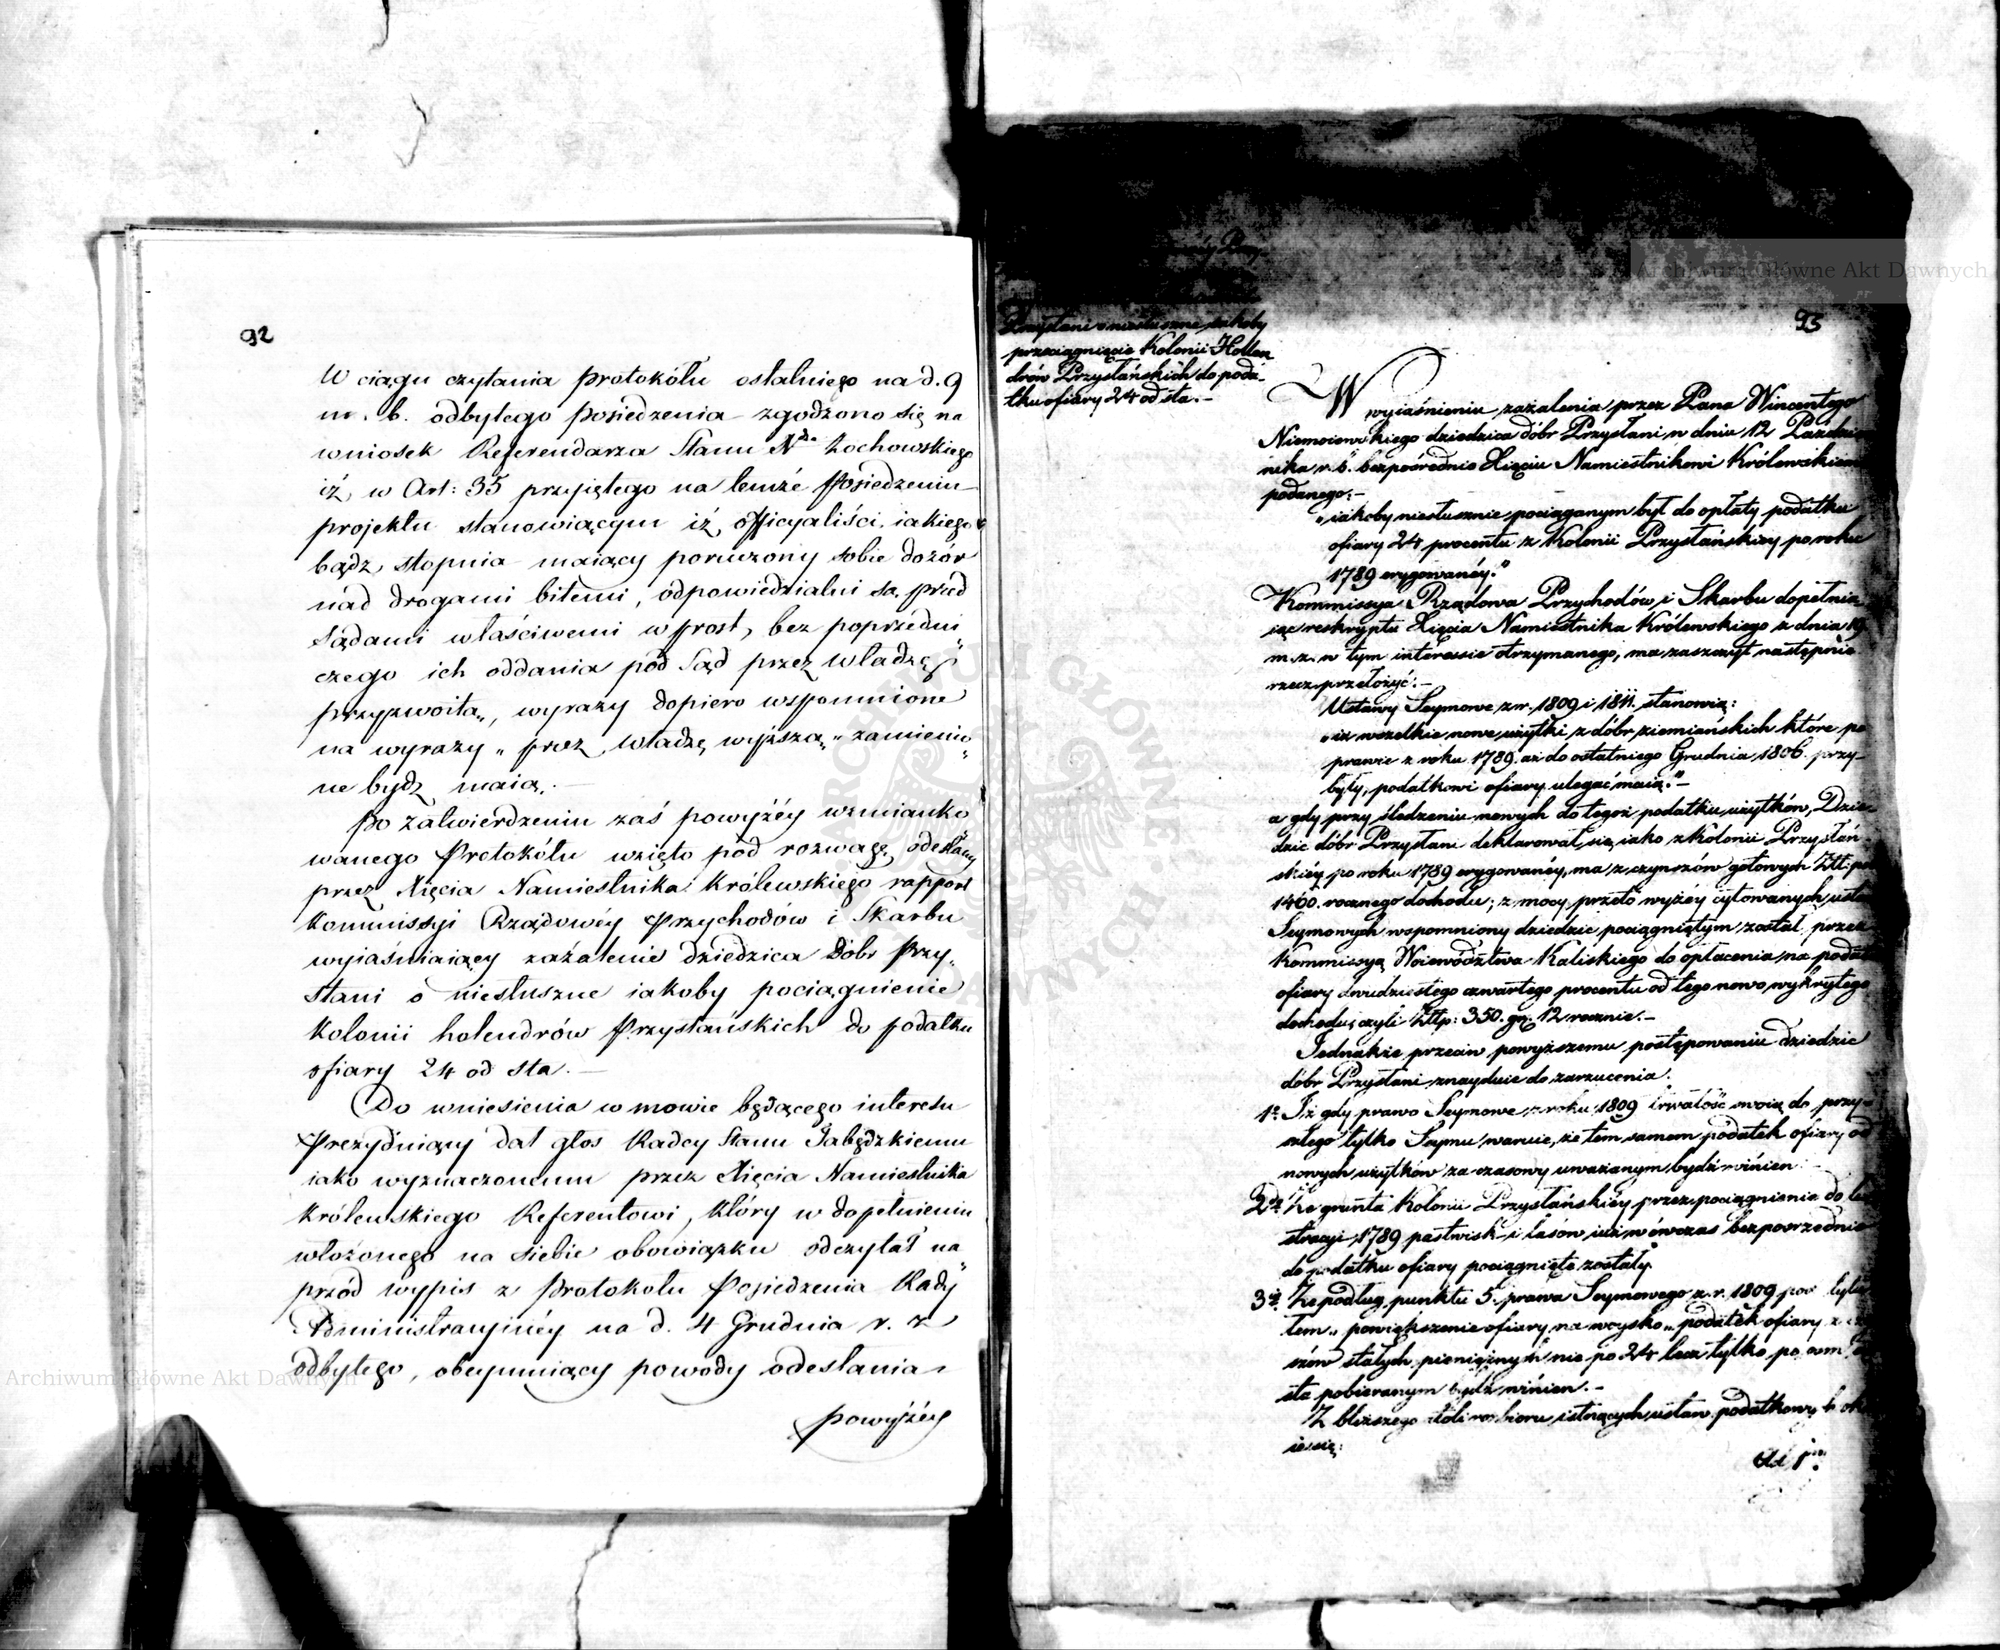 92
W ciągu czytania protokółu ostatniego na d. 9
m. b. odbytego posiedzenia zgodzono się na
wniosek Referendarza Stanu Nadz. Żochowskiego
iż, w Art: 35 przyjętego na temże Posiedzeniu
projektu stanowiącym iż, officyaliści iakiego
bądz stopnia maiący poruczony sobie dozór
nad drogami bitemi, odpowiedzialni są, przed
Sądami właściwemi wprost, bez poprzedni
czego ich oddania pod Sąd przez władzę
przyzwoitą„, wyrazy dopiero wspomnione
na wyrazy „ przez władzę wyższą„ zamienio„
ne bydz maią.
Po zatwierdzeniu zaś powyżéy wzmianko
wanego Protokółu wzięto pod rozwagę, odesłany
przez Xięcia Namiestnika Królewskiego rapport
Kommissyi Rządowéy Przychodów i Skarbu
wyiaśniaiący zażalenie dziedzica Dóbr Przy„
stani o niesłuszne iakoby pociągnienie
Kolonii holendrów Przystańskich do podatku
ofiary 24 od sta. —
Do wniesienia w mowie będącego interesu
Prezyduiący dał głos Radcy Stanu Gałędzkiemu
iako wyznaczonemu przez Xięcia Namiestnika
Królewskiego Referentowi, który w dopełnieniu
włożonego na siebie obowiązku odczytał na
przód wypis z Protokołu Posiedzenia Rady
Administracyinéy na d. 4 Grudnia r. z
odbytego, obeymuiący powody odesłania
powyżéy
93
Przystani o niesłuszne iakoby
przeciągnięcie Kolonii Hollen
drów Przystańskich do poda„
tku ofiary 24 od sta. —
W wyiaśnieniu zażalenia przez Pana Wincentego
Niemoiewskiego dziedzica dóbr Przystani w dniu 12 Paździer
nika r. b. bezpośrednio Xięciu Namiestnikowi Królewskiemu
podanego: —
„ iakoby niesłusznie pociąganym był do opłaty podatku
ofiary 24 procentu z Kolonii Przystańskiey po roku
1789 erygowanéy."
Kommissya Rządowa Przychodów i Skarbu dopełnia
iąc reskryptu Xięcia Namiestnika Królewskiego z dnia 19
m. z. w tym interessie otrzymanego, ma zaszczyt następnie
rzecz przełożyć: —
Ustawy Seymowe z r. 1809 i 1811. stanowią:
„ iż wszelkie nowe użytki z dóbr ziemiańskich które po
prawie z roku 1789. aż do ostatniego Grudnia 1806. przy„
były, podatkowi ofiary ulegać maią." —
a gdy przy śledzeniu nowych do tegoż podatku użytków, Dzie
dzic dóbr Przystani deklarował się iako z Kolonii Przystań„
skiéy po roku 1789 erygowanéy, ma z czynszów gotowych Złt: pol
1460. rocznego dochodu; z mocy przeto wyżéy cytowanych ustaw
Seymowych wspomniony dziedzic pociągniętym został przez
Kommissyą Woiewództwa Kaliskiego do opłacenia na podatek
ofiary dwudziestego czwartego procentu od tego nowo wykrytego
dochodu, czyli Złtp: 350. gr. 12 rocznie. —
Jednakże przeciw powyższemu postępowaniu dziedzic
dóbr Przystani znayduie do zarzucenia:
1º Iż gdy prawo Seymowe z roku 1809 trwałość swoią do przy„
szłego tylko Seymu waruie, że tem samem podatek ofiary od
nowych użytków za czasowy uważanym bydź winien
2º Że grunta Kolonii Przystańskiéy przez pociągnienie do lu
stracyi 1789 pastwisk i lasów iuż w ówczas bezpośrednio
do podatku ofiary pociągnięte zostały.
3º Że podług punktu 5. prawa Seymowego z r. 1809 pod tytu
łem„ powiększenie ofiary na woysko„ podatek ofiary z czyn
szów stałych pieniężnych nie po 24 lecz tylko po
sta pobieranym bydź winien. —
Z bliższego rozbioru istnących ustaw podatkowych oka
ie się:
Ad 1m